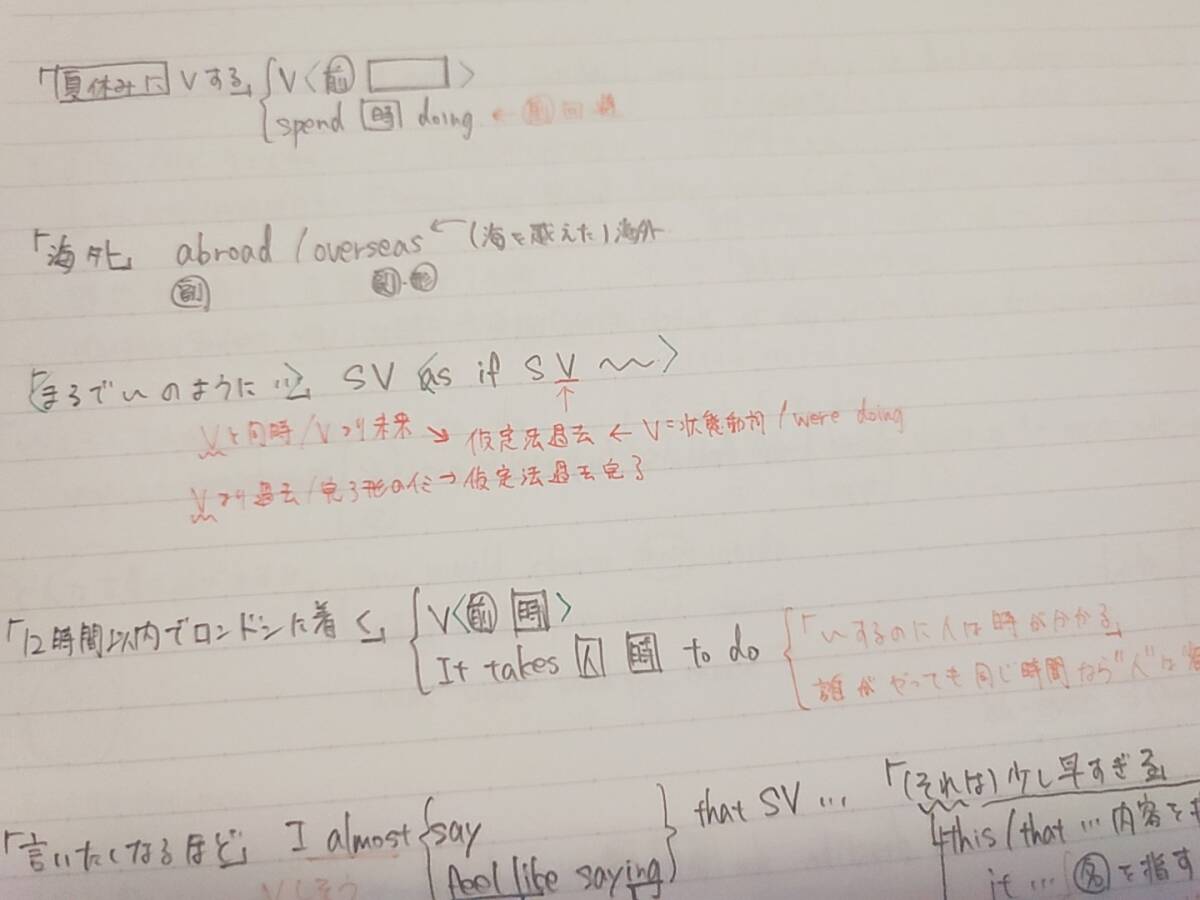 「夏休みに Vする」 V〈前 〉
spend 時 doing ←
「海外」 abroad / overseas ← (海を越えた) 海外
副 副・形
「まるで〜のように…」 SV 〈as if SV 〜〉
↑
Vと同時/Vより未来 ↘ 仮定法過去 ← V=状態動詞 / were doing
Vより過去/完了形の仮 → 仮定法過去完了
「12時間以内でロンドンに着く」 V〈前 時〉
It takes 人 時 to do 「〜するのに人は時が分かる」
誰がやっても同じ時間なら"人"は
「言いたくなるほど」 I almost say
feel like saying
that SV … 「(それは)少し早すぎる」
Vしそう
this / that … 内容を
it … 名を指す